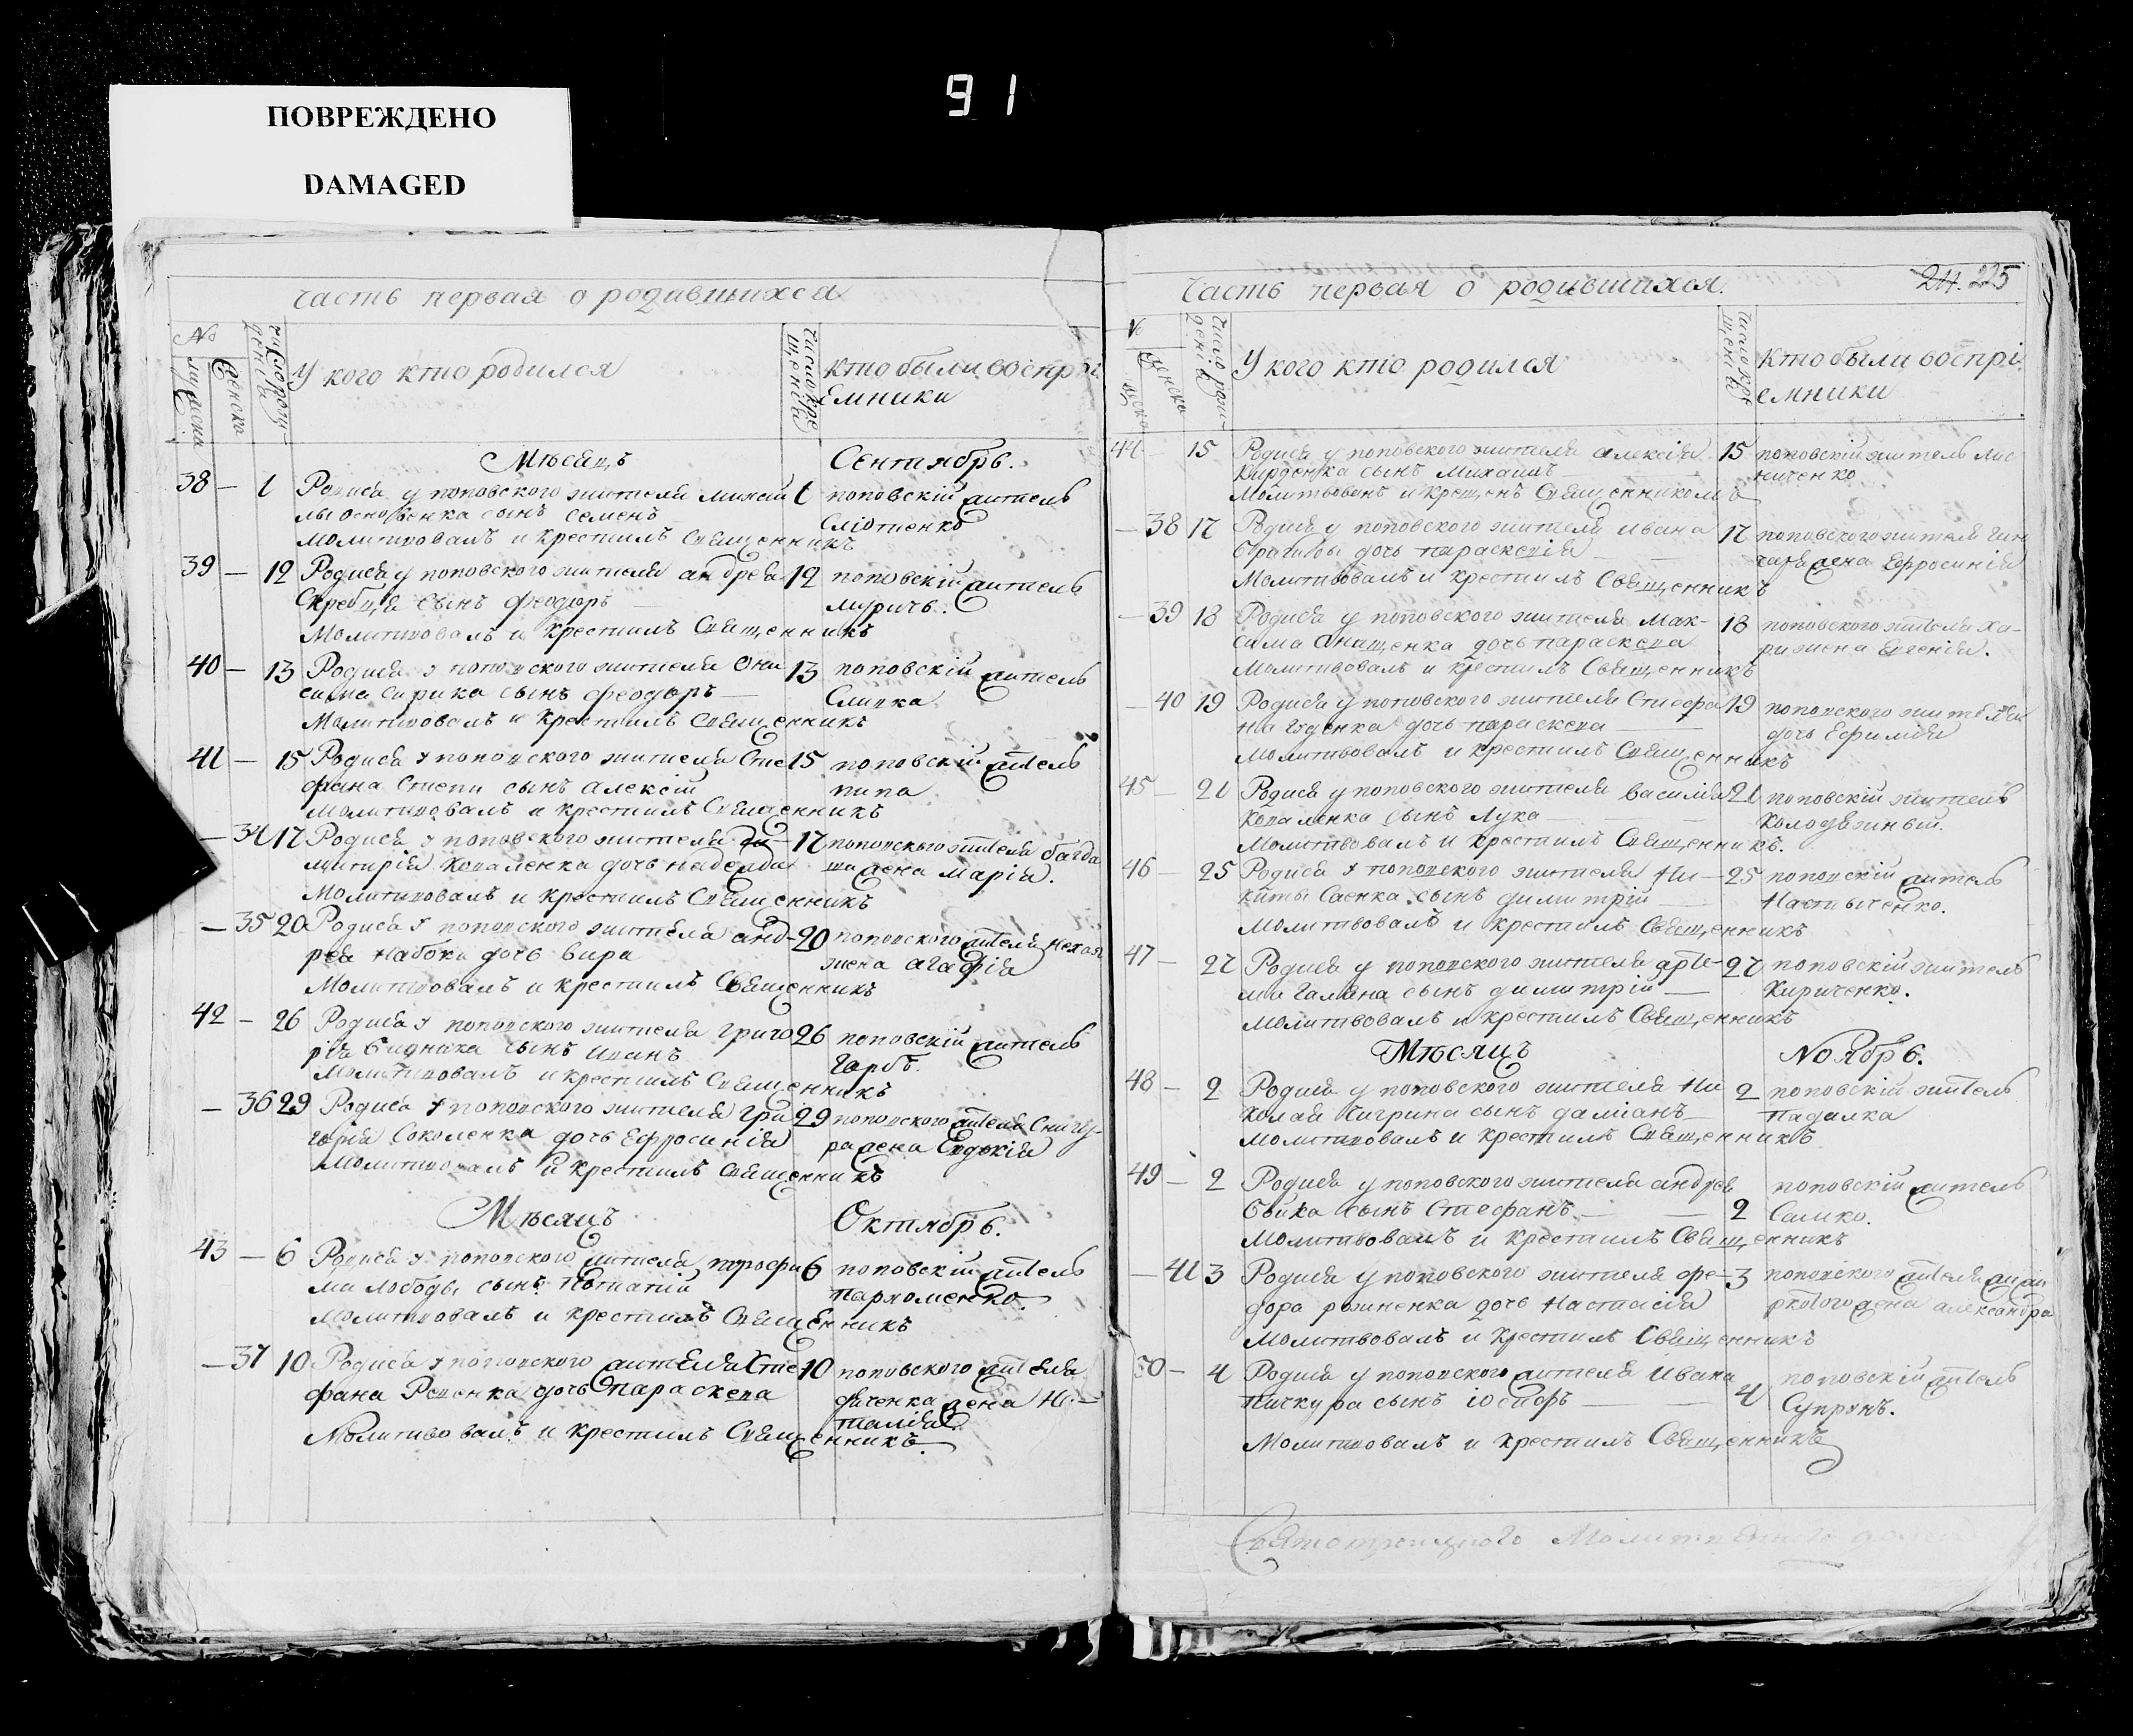 91
ПОВРЕЖДЕНО
DAMAGED
часть первая о родившихся
№
мужеска
женска
число рожденія
У кого кто родился
число крещенія
кто были воспріемники
Мѣсяцъ Сентябрь.
38 — 1 Родися у поповского жителя михай 1 поповскій житель
сынъ семенъ
молитвовалъ и крестилъ Священникъ
39 — 12 Родися у поповского жителя андрея 12 поповскій житель
Скребца сынъ феодоръ — миричь.
Молитвовалъ и крестилъ Священникъ
40 — 13 Родися у поповского жителя Они 13 поповскій житель
сима сирика сынъ феодоръ — Слипка
Молитвовалъ и крестилъ Священникъ
41 — 15 Родися у поповского жителя Сте 15 поповскій житель
фана Степи сынъ алексій пипа
молитвовалъ и крестилъ Священникъ
— 34 17 Родися у поповского жителя ди— 17 поповского жителя багда
митрія коваленка дочь надежда жена марія.
Молитвовалъ и крестилъ Священникъ
— 35 20 Родися у поповского жителя анд— 20 поповского жителя
рея Набоки дочь вира жена агафія
Молитвовалъ и крестилъ Священникъ
42 — 26 Родися у поповского жителя григо 26 поповскій житель
рія бидника сынъ иванъ Гарбъ.
молитвовалъ и крестилъ Священникъ
— 36 29 Родися у поповского жителя гри 29 поповского жителя Снигу—
горія Соколенка дочь Ефросинія ра жена Евдокія
молитвовалъ и крестилъ Священникъ
Мѣсяцъ Октябрь.
43 — 6 Родися у поповского жителя трофи 6 поповскій житель
ма лободы сынъ Игнатій пархоменко.
молитвовалъ и крестилъ Священникъ
— 37 10 Родися у поповского жителя Сте 10 поповского жителя
фана дочь параскева жена На—
талія
Молитвовалъ и крестилъ Священникъ.
Часть первая о родившихся. 225
№
женска
число рожденія
У кого кто родился
число крещенія
Кто были воспріемники
44 15 Родися у поповского жителя алексія 15 поповскій житель лис
Кирденка сынъ михаилъ ниченко
молитвованъ и крещенъ Священникомъ
— 38 17 Родися у поповского жителя ивана 17 поповского жителя гин
дочь параскевія — жена Ефросинія
Молитвовалъ и крестилъ Священникъ
— 39 18 Родися у поповского жителя мак— 18 поповского жителя ха—
сима Онищенка дочь параскева жена Евгенія.
молитвовалъ и крестилъ Священникъ
— 40 19 Родися у поповского жителя Стефа 19 поповского жителя
на гуденка дочь параскева — дочь Ефимія
молитвовалъ и крестилъ Священникъ
45 — 21 Родися у поповского жителя василія 21 поповскій житель
коваленка сынъ Лука — колодяжный.
Молитвовалъ и крестилъ Священникъ.
46 — 25 Родися у поповского жителя Ни— 25 поповскій житель
киты Саенка сынъ димитрій — Настыченко.
молитвовалъ и крестилъ Священникъ
47 — 27 Родися у поповского жителя арте— 27 поповскій житель
ма Галяна сынъ димитрій — Кириченко.
молитвовалъ и крестилъ Священникъ
Мѣсяцъ Ноябрь.
48 — 2 Родися у поповского жителя Ни 2 поповскій житель
колая Чигрина сынъ даміанъ — падалка
молитвовалъ и крестилъ Священникъ
49 — 2 Родися у поповского жителя андрея поповскій житель
бойка сынъ Стефанъ — 2 Самко.
молитвовалъ и крестилъ Священникъ
— 41 3 Родися у поповского жителя фе— 3 поповского жителя
дора дочь Настасія жена александра
молитвовалъ и крестилъ Священникъ
50 — 4 Родися у поповского жителя ивана поповскій житель
пичкура сынъ іосифъ — 4 Супрунъ.
Молитвовалъ и крестилъ Священникъ
Святотроицкого Молитвенного